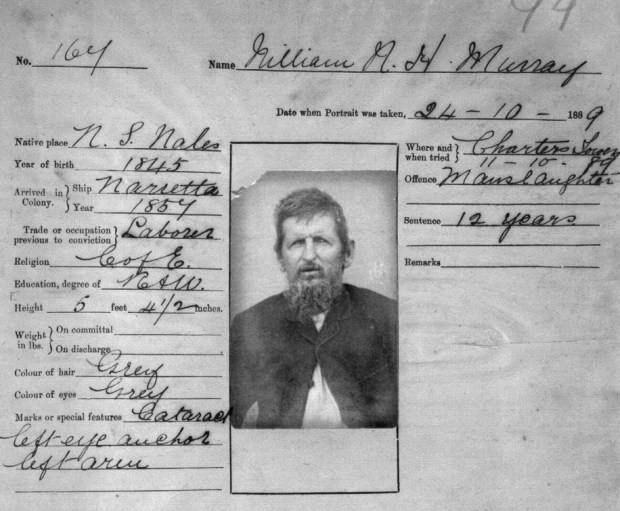 94
No. 164 Name William N. H. Murray
Date when Portrait was taken, 24-10-1889
Native place N. S. Wales
Year of birth 1845
Arrived in Colony. } Ship Narsetta
Year 1857
Trade or occupation previous to conviction } Laborer
Religion C of E.
Education, degree of R&W.
Height 5 feet 4 1/2 inches.
Weight in lbs. } On committal
On discharge
Colour of hair Grey
Colour of eyes Grey
Marks or special features Cataract
left eye anchor
left arm
Where and when tried } Charters Towers
11-10-89
Offence Manslaughter
Sentence 12 years
Remarks